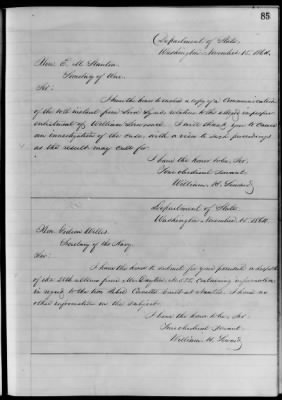 85
Department of State
Washington November 15, 1864.
Hon. E. M. Stanton
Secretary of War
Sir:
I have the honor to enclose a copy of a communication
of the 10th instant from Lord Lyons relative to the alleged improper
enlistment of William
I will thank you to cause
an investigation of the case, with a view to such proceedings
as the result may call for.
I have the honor to be, Sir,
Your obedient servant
William H. Seward
Department of State
Washington November 15, 1864
Hon. Gideon Welles.
Secretary of the Navy.
Sir:
I have the honor to submit for your perusal a despatch
of the 28th ultimo from Mr. Dayton, No.
containing information
in regard to the two Rebel Corvettes built at Nantes. I have no
other information on the subject.
I have the honor to be, Sir
Your obedient servant
William H. Seward